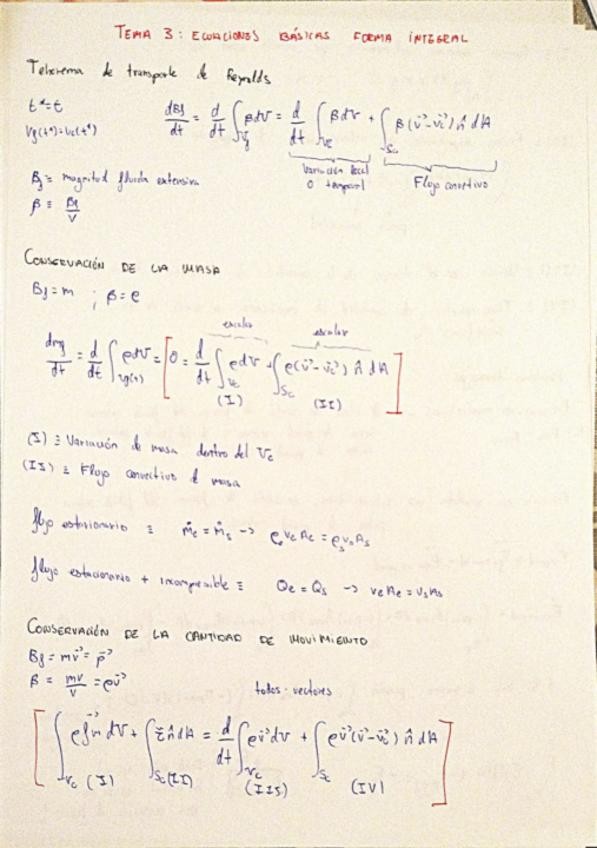 TEMA 3: ECUACIONES BÁSICAS FORMA INTEGRAL
Teorema de transporte de Reynolds
t*=t
V_f(t*)=V_c(t*)
dB_f/dt = d/dt ∫_{V_f} β dV = d/dt ∫_{V_c} β dV + ∫_{S_c} β(v⃗-v⃗_c) n̂ dA
Variación local
O temporal
Flujo convectivo
B_f ≡ magnitud fluida extensiva
β ≡ B_f/V
CONSERVACIÓN DE LA MASA
B_f = m ; β = ρ
escalar escalar
dm_f/dt = d/dt ∫_{V_f(t)} ρ dV = [ 0 = d/dt ∫_{V_c} ρ dV + ∫_{S_c} ρ(v⃗-v⃗_c) n̂ dA ]
(I) (II)
(I) ≡ Variación de masa dentro del V_c
(II) ≡ Flujo convectivo d masa
flujo estacionario ≡ ṁ_e = ṁ_s -> ρ_e v_e A_e = ρ_s v_s A_s
flujo estacionario + incompresible ≡ Q_e = Q_s -> v_e A_e = v_s A_s
CONSERVACIÓN DE LA CANTIDAD DE MOVIMIENTO
B_f = mv⃗ = p⃗
β = mv/V = ρv⃗
todos: vectores
[ ∫_{V_c} ρ f⃗_m dV + ∫_{S_c} τ̄ n̂ dA = d/dt ∫_{V_c} ρv⃗ dV + ∫_{S_c} ρv⃗(v⃗-v⃗_c) n̂ dA ]
(I) (II) (III) (IV)